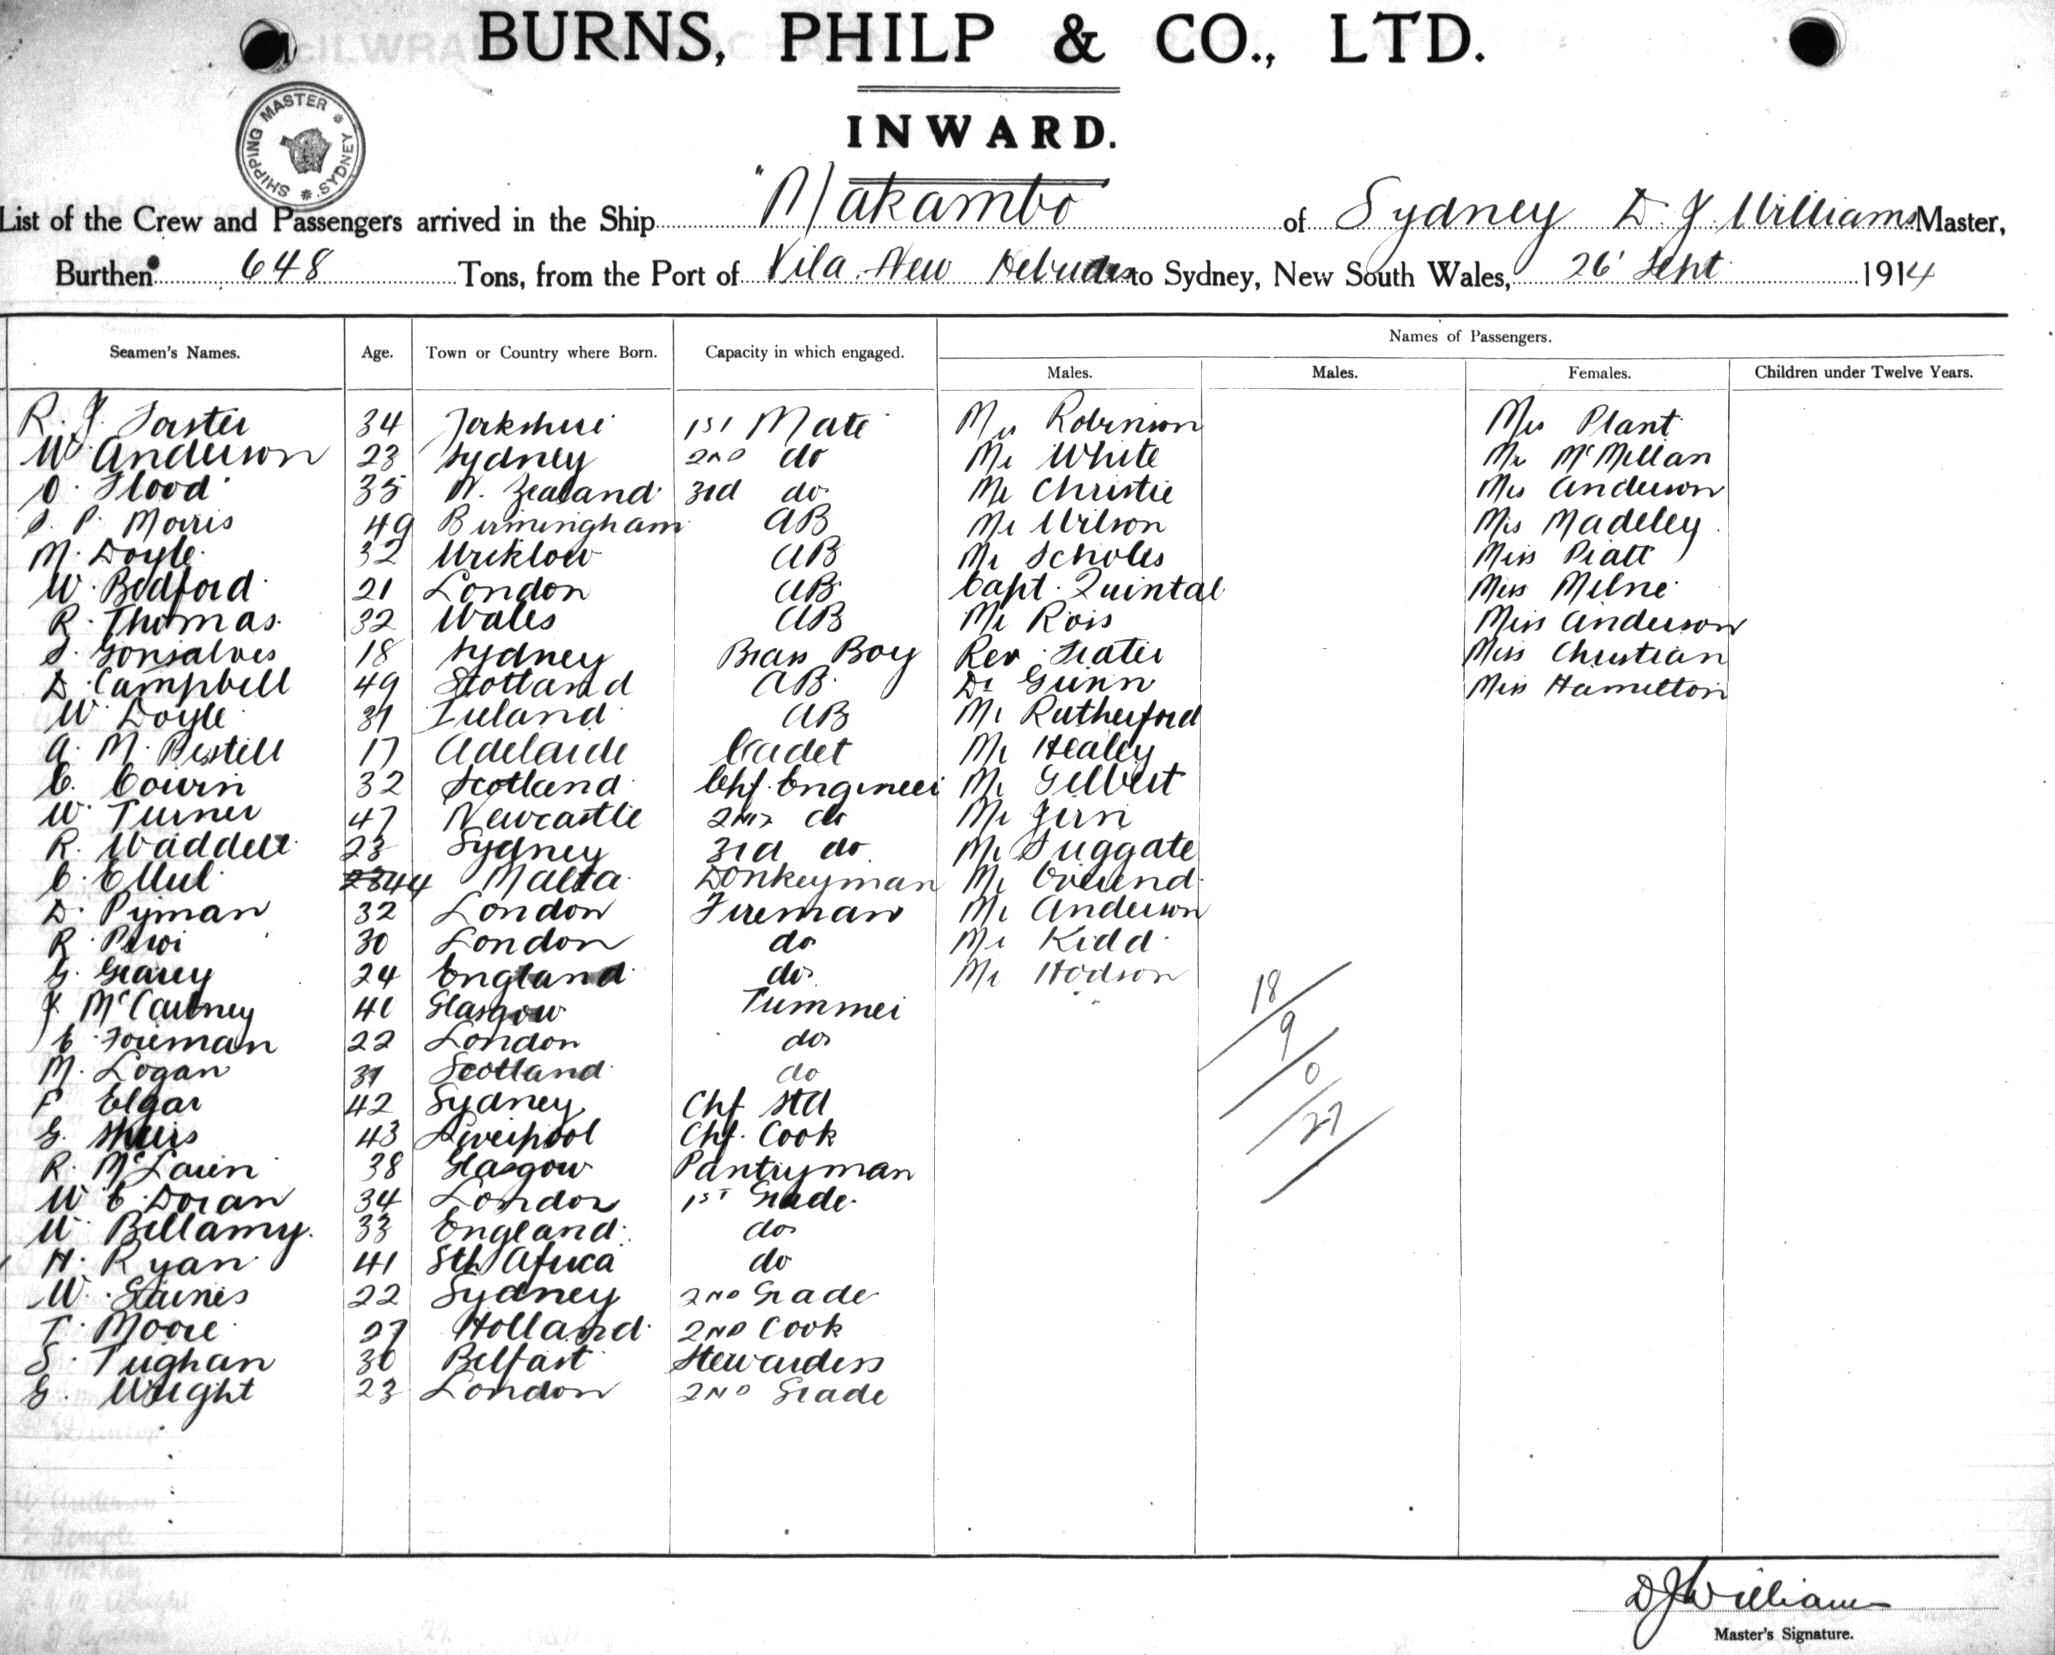 BURNS, PHILP & CO., LTD.
INWARD.
SHIPPING MASTER * SYDNEY *
List of the Crew and Passengers arrived in the Ship "Makambo of Sydney D. J. Williams Master,
Burthen 648 Tons, from the Port of Vila New Hebrides to Sydney, New South Wales, 26' Sept 1914
Names of Passengers.
Seamen's Names. Age. Town or Country where Born. Capacity in which engaged. Males. Males. Females. Children under Twelve Years.
R. J. Forster 34 Yorkshire 1st Mate Mr Robinson Mrs Plant
W. Anderson 23 Sydney 2nd do Mr White McMillan
O. Flood 35 N. Zealand 3rd do Mr Christie Mrs Anderson
P. Morris 49 Birmingham AB Mr Wilson Mrs Madeley
M. Doyle 32 Wicklow AB Mr Scholes Miss Piatt
W. Bedford 21 London AB Capt. Quintal Miss Milne
R. Thomas 32 Wales AB Mr Ross Miss Anderson
S. Gonsalves 18 Sydney Brass Boy Rev. Frater Miss Christian
D. Campbell 49 Scotland AB Dr Gunn Miss Hamilton
W. Doyle 31 Ireland AB Mr Rutherford
A. M. Pistell 17 Adelaide Cadet Mr Healey
C. Cowin 32 Scotland Chf. Engineer Mr Gilbert
W. Turner 47 Newcastle 2nd do Mr
R. Waddell 23 Sydney 3rd do Mr Suggate
C. Ellul 44 Malta Donkeyman Mr Overend
D. Pyman 32 London Fireman Mr Anderson
R. 30 London do Mr Kidd
G. Gearey 24 England do Mr Hodson
J McCartney 40 Glasgow Trimmer 18
C. Foreman 22 London do 9
M. Logan 31 Scotland do 0
F Elgar 42 Sydney Chf Std
G. 43 Liverpool Chf. Cook 27
R. McLaren 38 Glasgow Pantryman
W. C. Doran 34 London 1st Grade
W. Bellamy. 33 England do
H. Ryan 41 Sth Africa do
W. Staines 22 Sydney 2nd Grade
T. Moore 27 Holland 2nd Cook
S. Tughan 30 Belfast Stewardess
G. Wright 23 London 2nd Grade
D J Williams
Master's Signature.